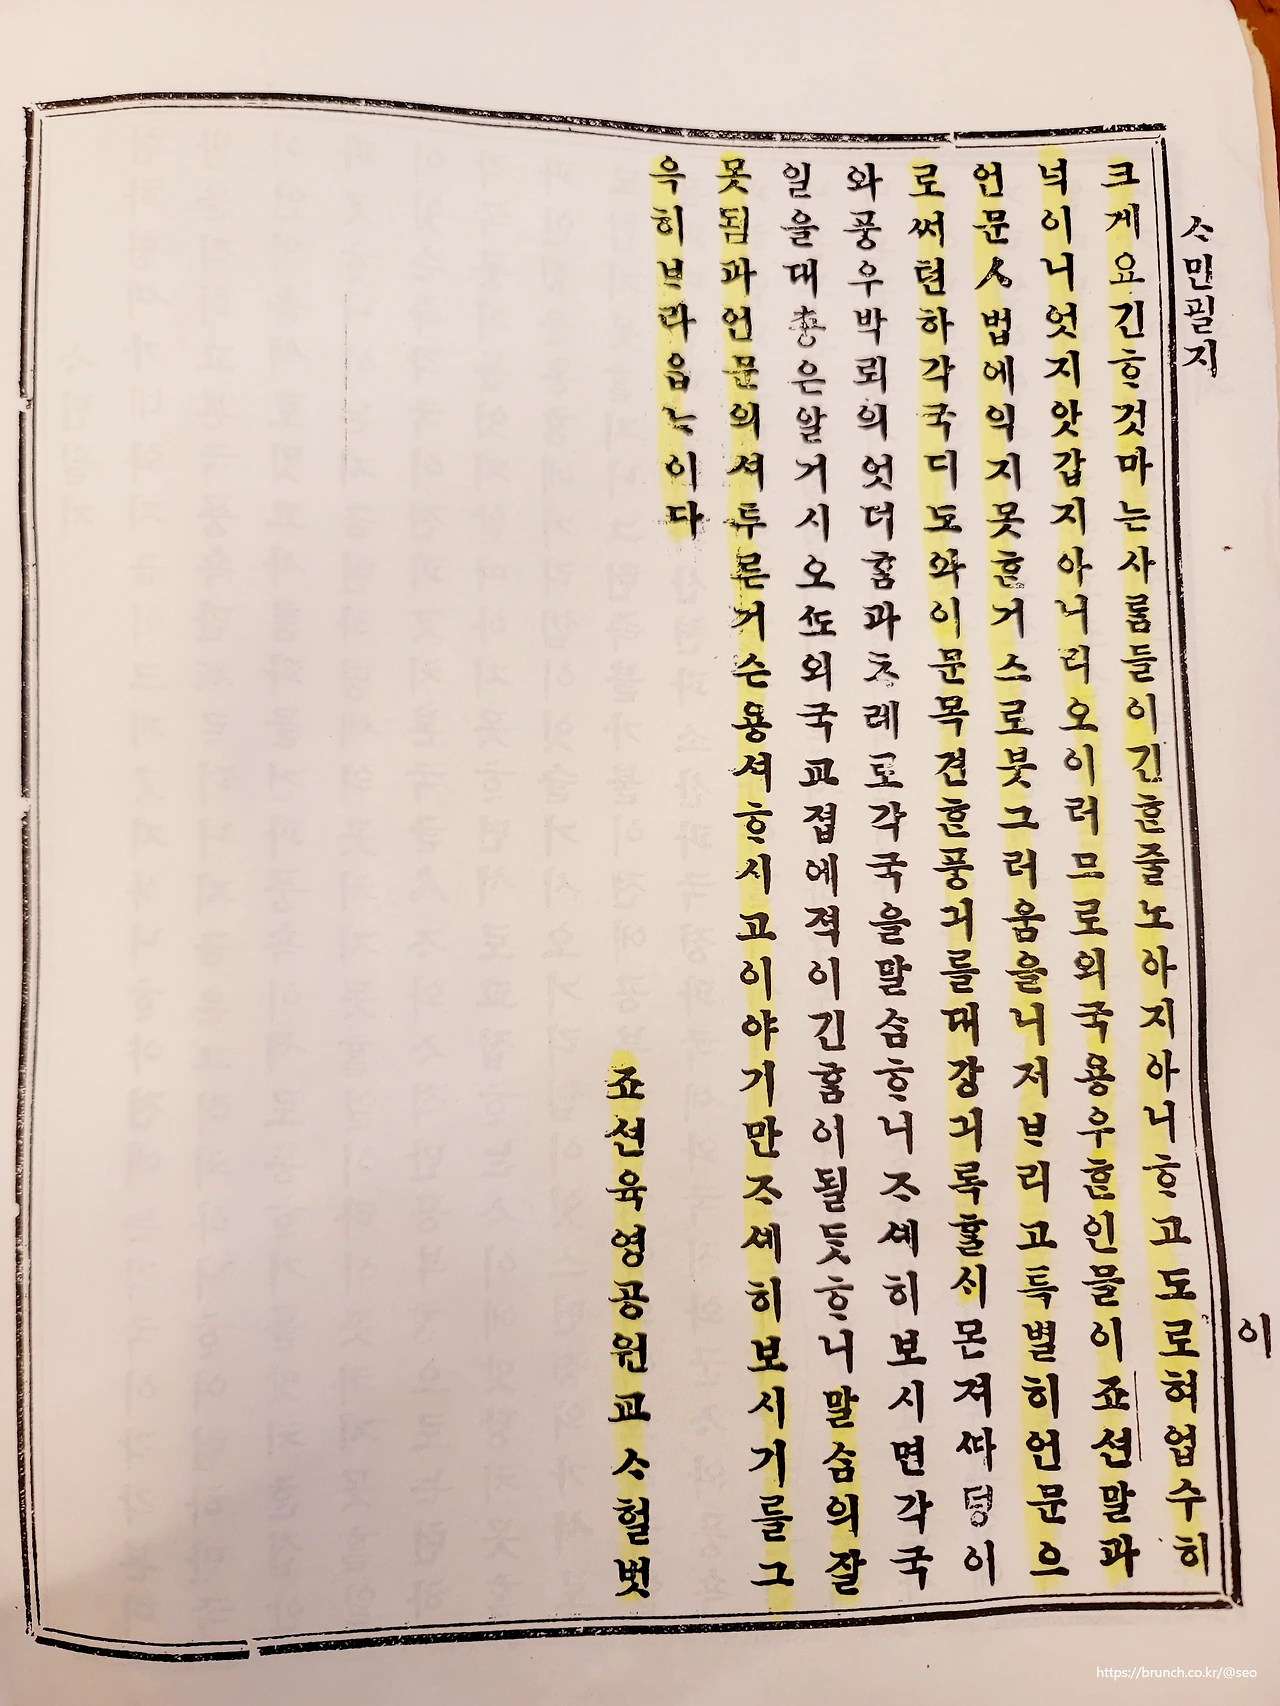 ᄉᆞ민필지
이
크게요긴ᄒᆞᆫ것마는사ᄅᆞᆷ들이긴ᄒᆞᆫ줄노아지아니ᄒᆞ고도로혀업수히
넉이니엇지앗갑지아니리오이러므로외국용우ᄒᆞᆫ인물이죠션말과
언문ㅅ법에익지못ᄒᆞᆫ거ᄉᆞ로붓그러움을니저ᄇᆞ리고특별히언문으
로써텬하각국디도와이문목견ᄒᆞᆫ풍긔를대강긔록ᄒᆞᆯᄉᆡ몬져ᄯᅡ덩이
와풍우박뢰의엇더ᄒᆞᆷ과ᄎᆞ례로각국을말ᄉᆞᆷᄒᆞ니ᄌᆞ셰히보시면각국
일을대춍은알거시오ᄯᅩ외국교졉에젹이긴ᄒᆞᆷ이될듯ᄒᆞ니말ᄉᆞᆷ의잘
못됨과언문의셔투른거슨용셔ᄒᆞ시고이야기만ᄌᆞ셰히보시기를그
윽히ᄇᆞ라ᄋᆞᆸᄂᆞ이다
죠션육영공원교ᄉᆞ헐벗
https://brunch.co.kr/@seo